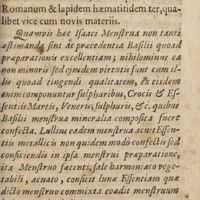 Romanum & lapidem hæmatitidem ter, qua-
libet vice cum novis materiis.
Quampis hæc Isaaci Menstrua non tanti
æstimanda sint ac præcedentia Basilii quoad
præparationis excellentiam; nihilominus ea
non minoris sed ejusdem virtutis sunt cum il-
lis quoad ingendi qualitatem, ex eisdem
enim componuntur sulphuribus, Crocis & Es-
sentiis Martis, Veneris, sulphuris, &c. quibus
Basilii menstrua mineralia composita fuere
confecta. Lullius eadem menstrua acuit Essen-
tiis metallicis non quidem modo confectis sed
conficiendis in ipsa menstrui præparatione,
ita Menstruo fœtenti, sale harmoniaco vege-
tabili, acuato, conficit lunæ Essentiam quæ
dicto menstruo commixta evadit menstruum